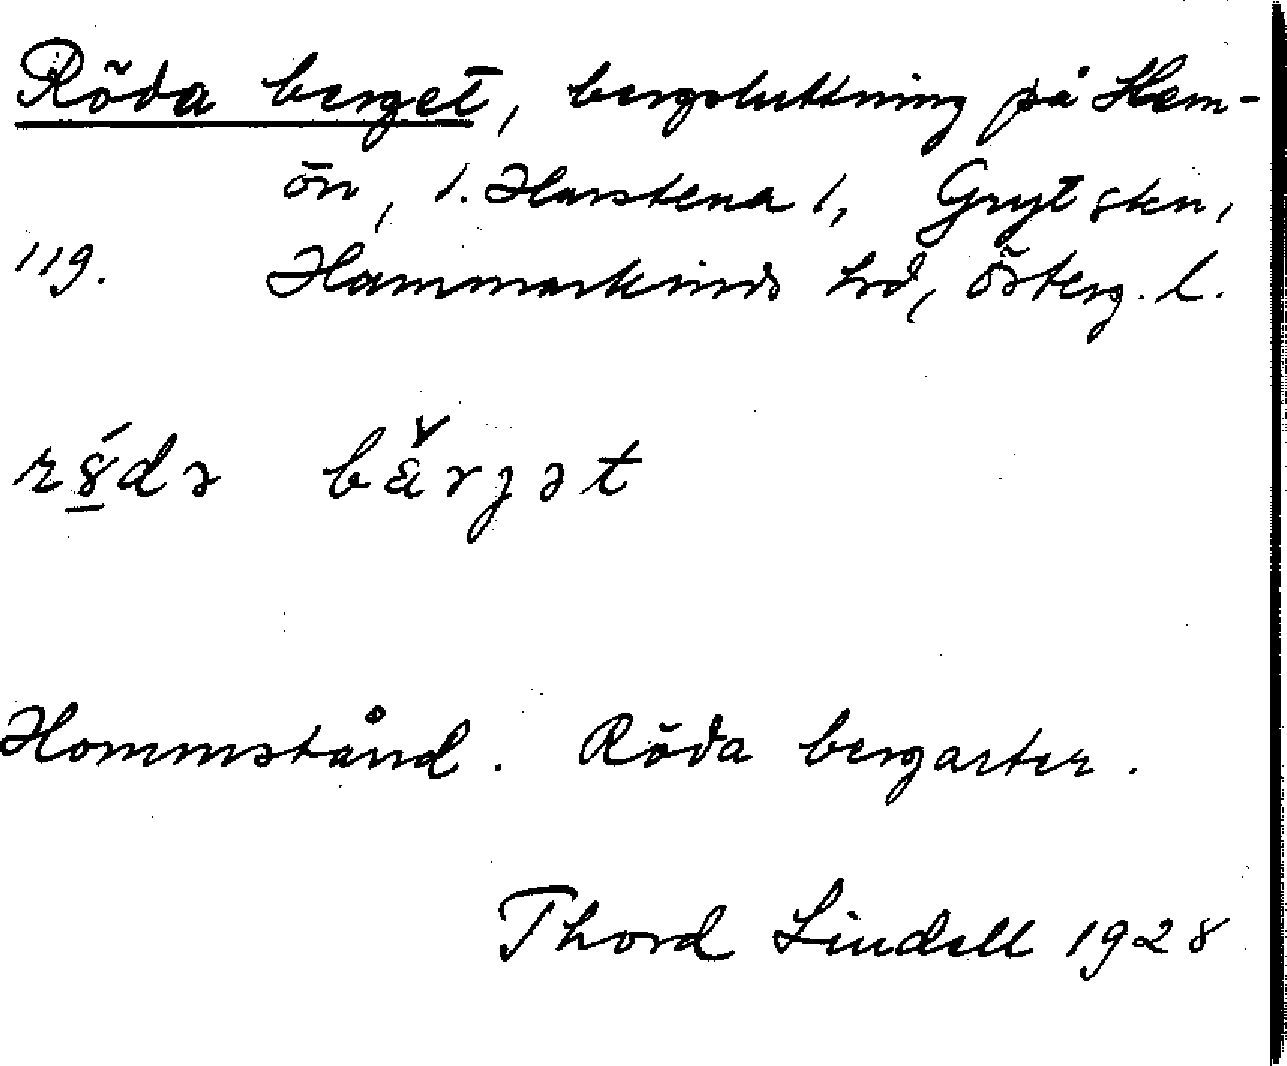 Röda berget, bergsluttning på Hem-
ön, 1. Harstena 1, Gryt skn,
119. Hammarkinds hd, Österg. l.
bärjət
Hommstånd. Röda bergarter.
Thord Lindell 1928